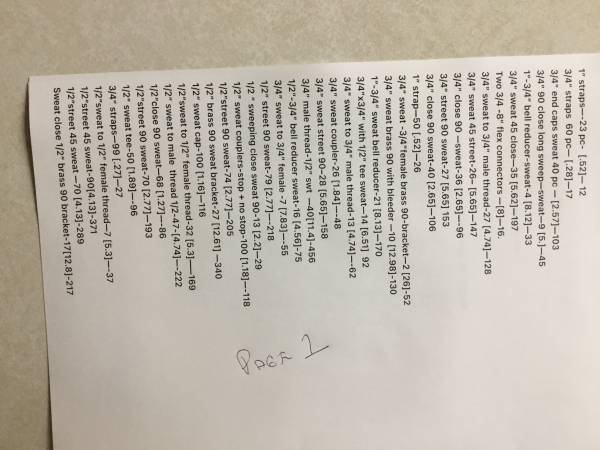 1" straps—-23 pc- [.52]— 12
3/4" straps 60 pc— [.28]—17
3/4" end caps sweat 40 pc — [2.57]—103
3/4" 90 close long sweep—sweat—9 [5.]—45
1"-3/4" bell reducer-sweat-4 [8.12]—33
3/4" sweat 45 close—35 [5.62]—197
Two 3/4 -8" flex connectors — [8]—16.
3/4" sweat to 3/4" male thread-27 [4.74]—128
3/4" sweat 45 street-26— [5.65]—147
3/4" close 90 —sweat-36 [2.65]—96
3/4" street 90 sweat-27 [5.65] 153
3/4" close 90 sweat-40 [2.65]—106
1" strap—50 [.52]—26
3/4" sweat -3/4"female brass 90-bracket—2 [26]-52
3/4" sweat brass 90 with bleeder —10 [12.98]-130
1"-3/4" sweat bell reducer-21 [8.13]—170
3/4"x3/4" with 1/2" tee sweat—14 [6.51] 92
3/4" sweat to 3/4" male thread-13 [4.74]—-62
3/4" sweat coupler-26 [1.84]—48
3/4" sweat street 90-28 [5.65]—158
3/4" male thread-1/2" swt —40[11.4]-456
1/2"-3/4" bell reducer sweat-16 [4.56]-75
3/4" sweat to 3/4" female -7 [7.83]—-55
1/2" street 90 sweat-79 [2.77]—218
1/2 " sweeping close sweat 90-13 [2.2]—29
1/2" sweat couplers-stop + no stop-100 [1.18]—-118
1/2"street 90 sweat-74 [2.77]—205
1/2" brass 90 sweat bracket-27 [12.61] —340
1/2" sweat cap-100 [1.16]—116
1/2"sweat to 1/2" female thread-32 [5.3]—-169
1/2" sweat to male thread 1/2-47-[4.74]—-222
1/2"close 90 sweat—68 [1.27]—-86
1/2"street 90 sweat-70 [2.77]—193
1/2" sweat tee-50 [1.89]—-96
3/4" straps—99 [.27]—27
1/2"sweat to 1/2" female thread—7 [5.3]—-37
1/2"street 45 sweat-90[4.13]-371
1/2"street 45 sweat —70 [4.13]-289
Sweat close 1/2" brass 90 bracket-17[12.8]-217
PAGE 1